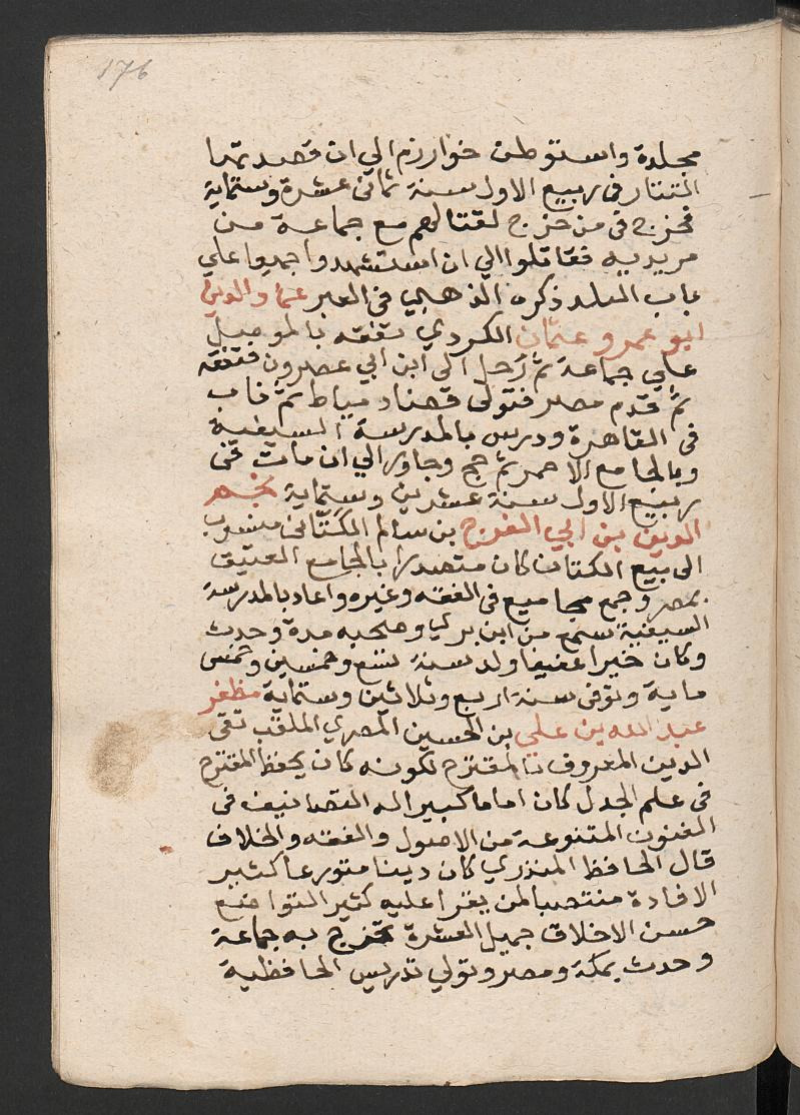 176
مجلدة واستوطن خوارزم الي ان قصدتها
التتار في ربيع الاول سنة ثماني عشرة وستماية
فخرج في من خرج لقتالهم مع جماعة من
مريديه فقاتلوا الي ان استشهدوا جميعا علي
باب البلد ذكره الذهبي في العبر عماد الدين
ابو عمرو عثمان الكردي تفقه بالموصل
علي جماعة ثم رحل الى ابن ابي عصرون فتفقه
ثم قدم مصر فتولى قضاد مياط ثم ناب
في القاهرة ودرس بالمدرسة السيفية
وبالجامع الاحمر ثم حج وجاور الي ان مات في
ربيع الاول سنة عشرين وستماية نجم
الدين بن ابي الفرج بن سالم الكتاني منسوب
الى بيع الكتان كان متصدرا بالجامع العتيق
بمصر وجمع مجاميع في الفقه وغيره واعاد بالمدرسة
السيفية سمع من ابن بري وصحبه مدة وحدث
وكان خيرا عفيفا ولد سنة تسع وخمسين وخمس
ماية وتوفى سنة اربع وثلاثين وستماية مظفر
عبد الله بن علي بن الحسين المصري الملقب تقي
الدين المعروف بالمقترح لكونه كان يحفظ المقترح
في علم الجدل كان اماما كبيرا له التصانيف في
الفنون المتنوعة من الاصول والفقه والخلاف
قال الحافظ المنذري كان دينا متورعا كثير
الافادة منتصبا لمن يقرا عليه كثير التواضع
حسن الاخلاق جميل العشرة تخرج به جماعة
وحدث بمكة ومصر وتولي تدريس الحافظية